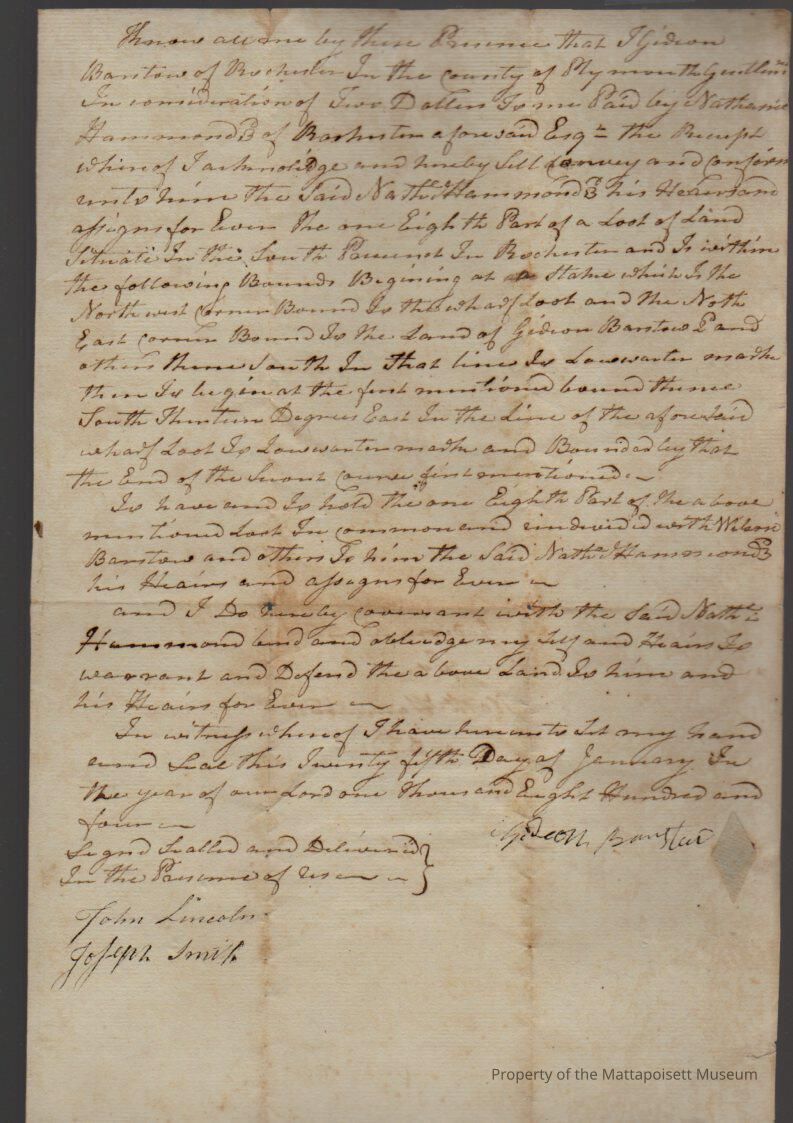 Know all me by these Presence that I Gideon
Barstow of Rochester In the County of Plymouth Gentlem
In consideration of Two Dollers To me Paid by Nathaniel
Hammond 3d of Rochester afore said Esqr the Receipt
where of I acknolidge and hereby Sell Convey and Confirm
unto him the Said Nathl Hammond 3d his Heairs and
assigns for Ever the one Eighth Part of a Loot of Land
Situate In the South Precinct In Rochester and Is within
the following Bounds Begining at a Stake which Is the
North west Corner Bound To the wharf Loot and the Noth
East Corner Bound To the Land of Gideon Barstow and
others thence South In that line To Lowwarter marke
then To begin at the first mentioned bound thence
South Thurteen Degrees East In the Line of the afore Said
wharf Loot To Lowwarter marke and Bounded by that
the End of the course first mentioned
To have and To hold the one Eighth Part of the above
mentioned Loot In common and undevided with Wilson
Barstow and others To him the Said Nathl Hammond 3d
his Heairs and assigns for Ever
and I Do hereby covenant with the Said Nathl
Hammond bind and obledge my Self and Heairs To
warrant and Defend the above Land To him and
his Heairs for Ever
In witness where of I have hereunto Set my hand
and Seal this Twenty fifth Day of January In
the year of our Lord one Thousand Eight Hundred and
four
Signd Sealled and Delivered
In the Presence of us
Gideon Barstow
John Lincoln
Joseph Smith
Property of the Mattapoisett Museum